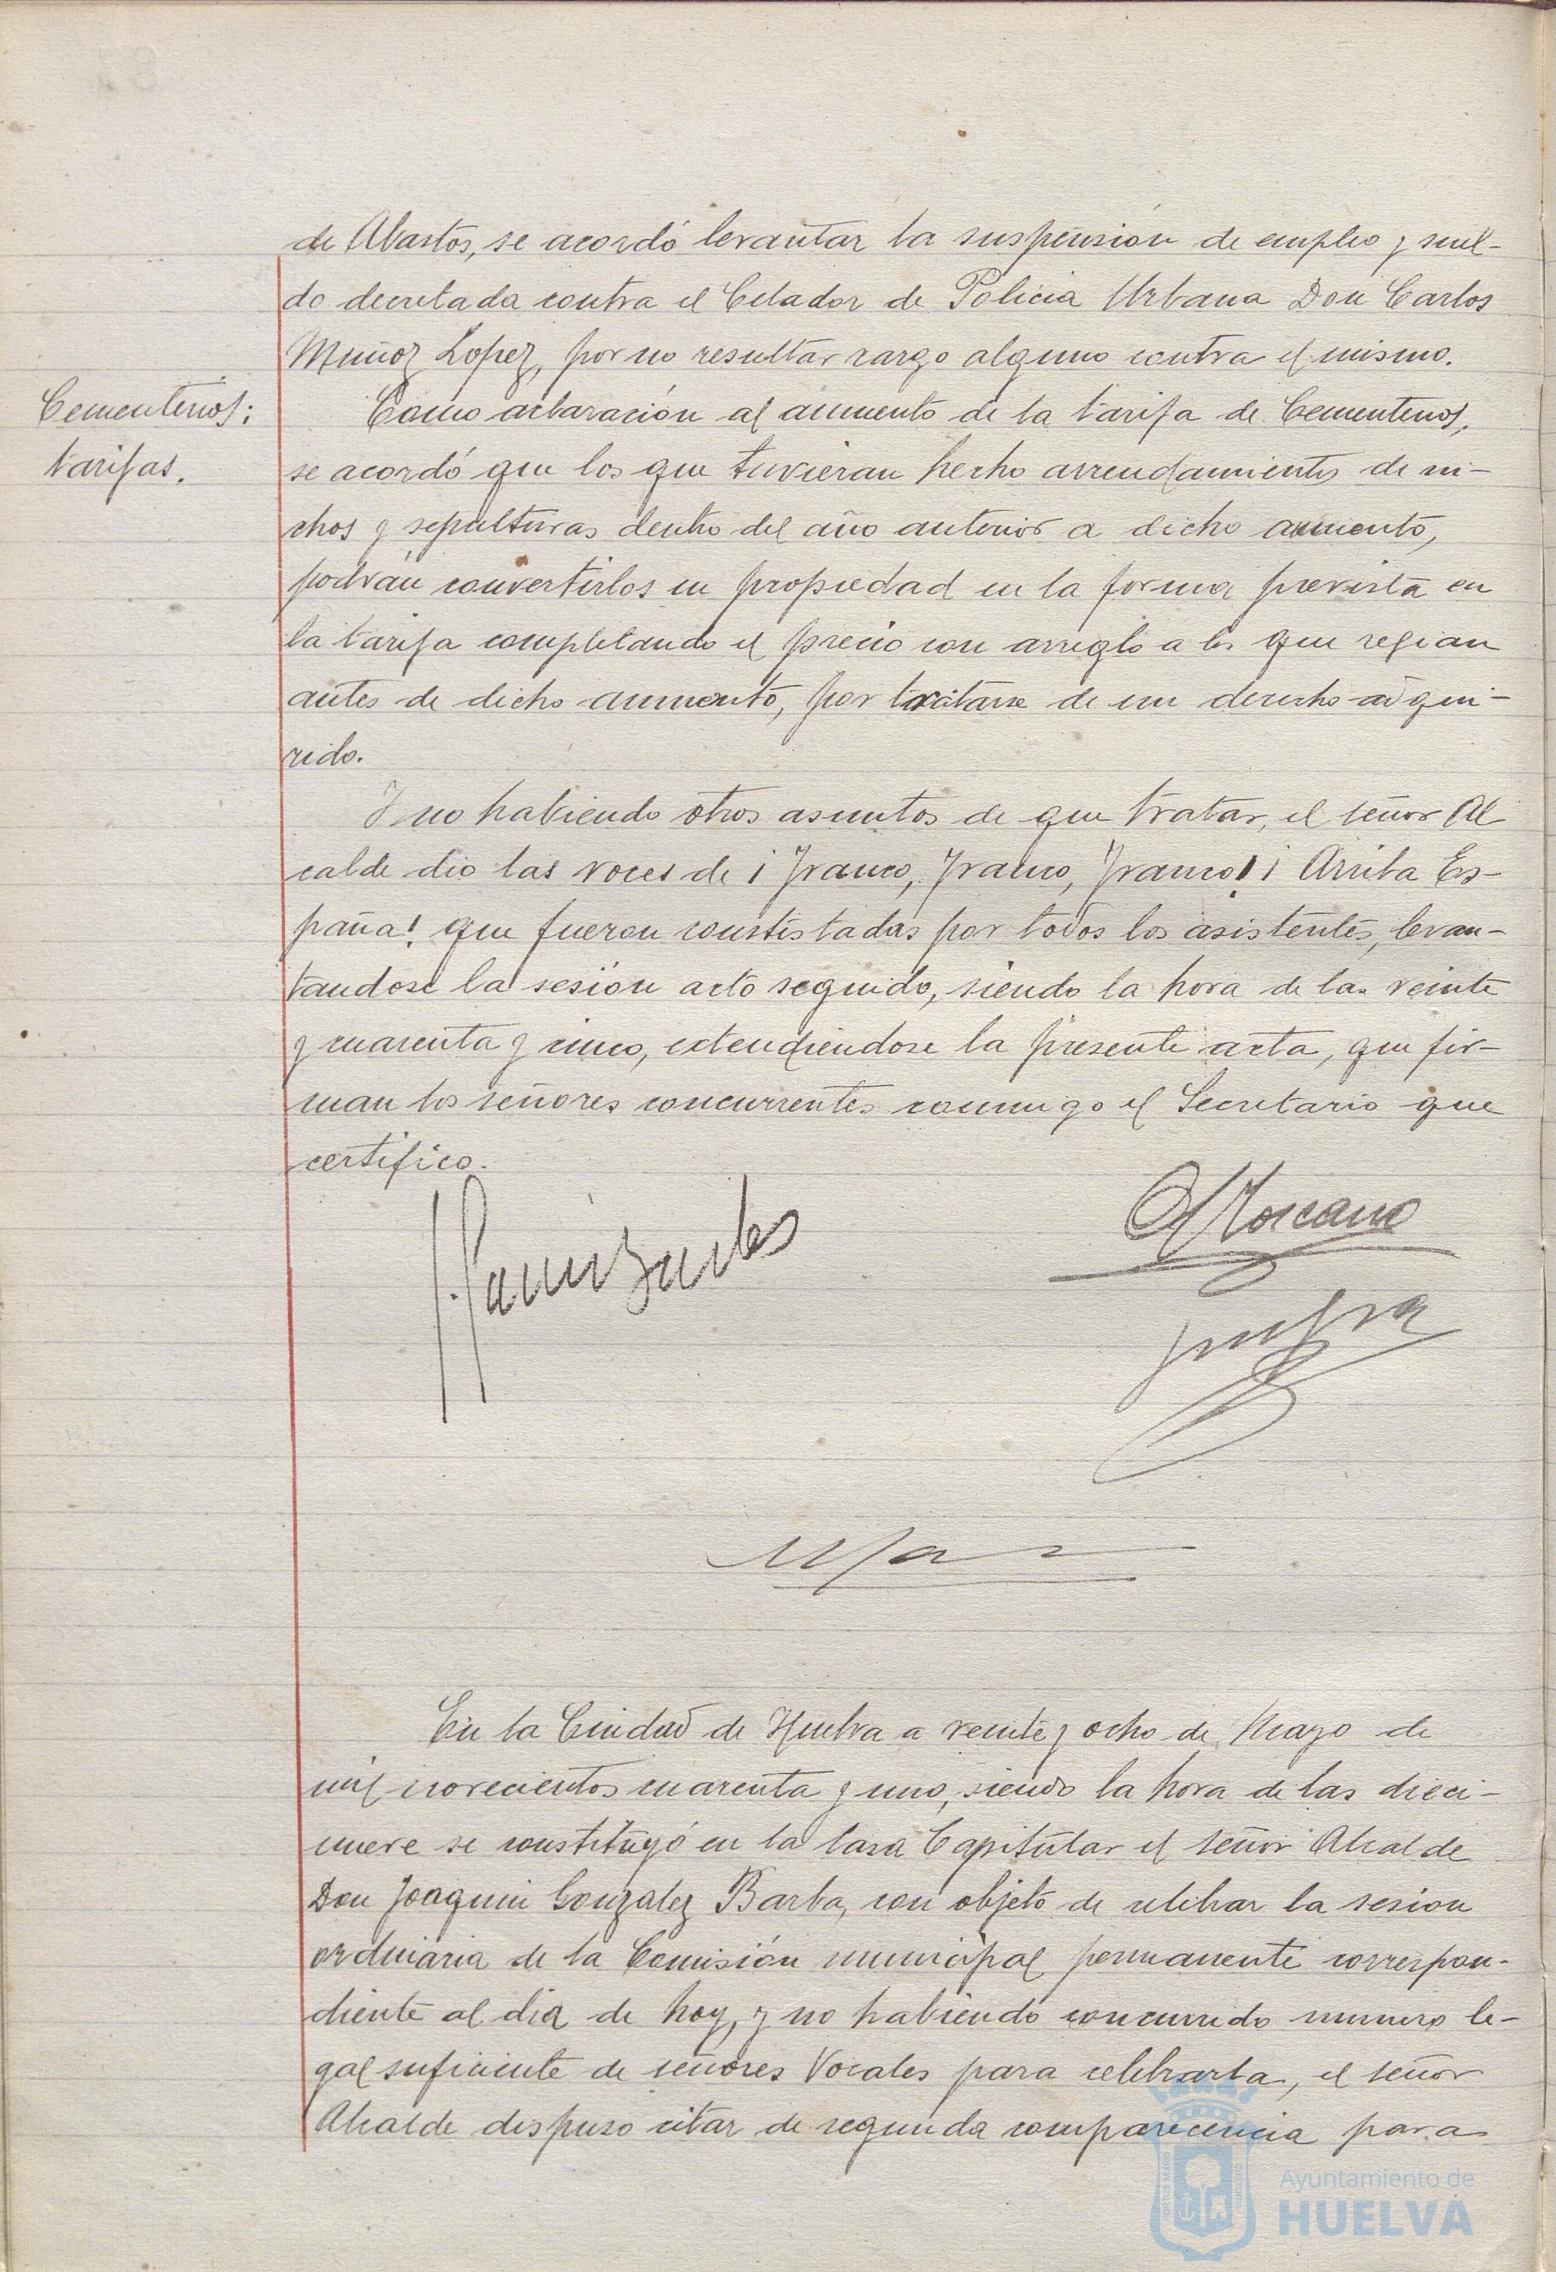 de Abastos, se acordó levantar la suspensión de empleo y suel-
do decretada contra el Celador de Policia Urbana Don Carlos
Muñoz Lopez, por no resultar cargo alguno contra el mismo.
Cementerios:
tarifas.
Como aclaración al aumento de la tarifa de Cementerios,
se acordó que los que tuvieran hecho arrendamientos de ni-
chos y sepulturas dentro del año anterior a dicho aumento,
podrán convertirlos en propiedad en la forma prevista en
la tarifa completando el precio con arreglo a los que regian
antes de dicho aumento, por tratarse de un derecho adqui-
rido.
Y no habiendo otros asuntos de que tratar, el señor Al-
calde dio las voces de ¡Franco, Franco, Franco! ¡Arriba Es-
paña! que fueron constistadas por todos los asistentes, levan-
tandose la sesión acto seguido, siendo la hora de las veinte
y cuarenta y cinco, extendiendose la presente acta, que fir-
man los señores concurrentes conmigo el Secretario que
certifico.
Toscano
En la Ciudad de Huelva a veinte y ocho de Mayo de
mil novecientos cuarenta y uno, siendo la hora de las dieci-
nueve se constituyó en la Casa Capitular el señor Alcalde
Don Joaquin Gonzalez Barba, con objeto de celebrar la sesion
ordinaria de la Comisión municipal permanente correspon-
diente al dia de hoy, y no habiendo concurrido numero le-
gal suficiente de señores Vocales para celebrarla, el señor
Alcalde dispuso citar de segunda comparecencia para
Ayuntamiento de
HUELVA